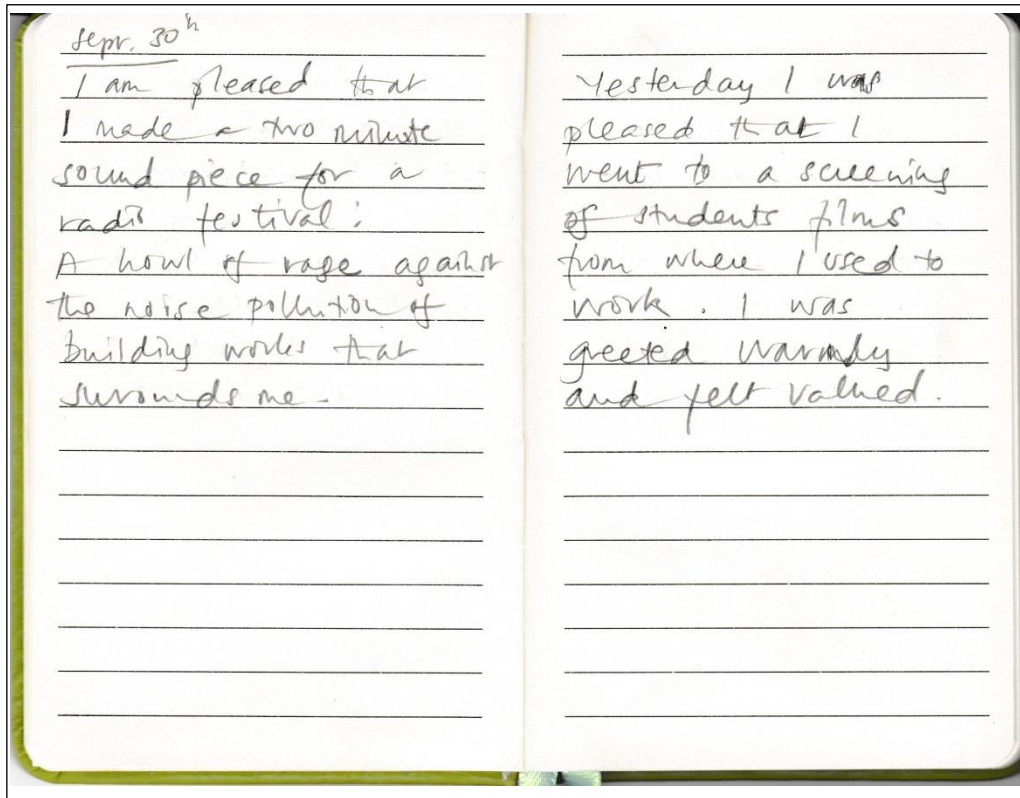 Sept. 30th
I am pleased that
I made a two minute
sound piece for a
radio festival:
A howl of rage against
the noise pollution of
building works that
surounds me.
Yesterday I was
pleased that I
went to a screening
of students films
from where I used to
work. I was
greeted warmly
and felt valued.